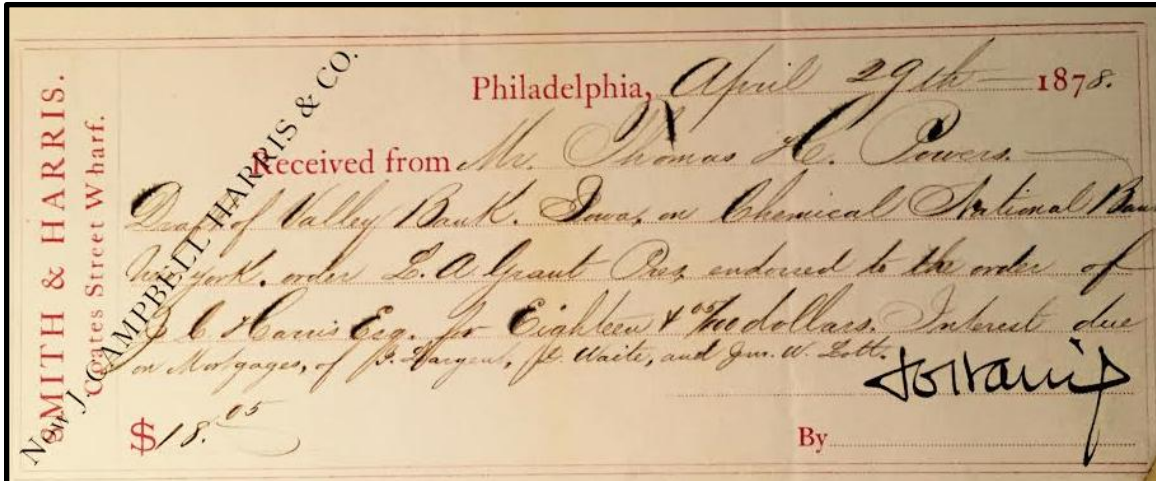 SMITH & HARRIS.
Coates Street Wharf.
Now J. CAMPBELL HARRIS & CO.
Philadelphia, April 29th 1878.
Received from Mr. Thomas H. Powers.
Draft of Valley Bank. Iowa, on Chemical National Bank
New York. order L. A Grant Pres endorsed to the order of
J C Harris Esq. for Eighteen & 05/100 dollars. Interest due
on Mortgages, of J. Largent, J. Waite, and Jno. W. Lott.
JCHarris
$18.05
By